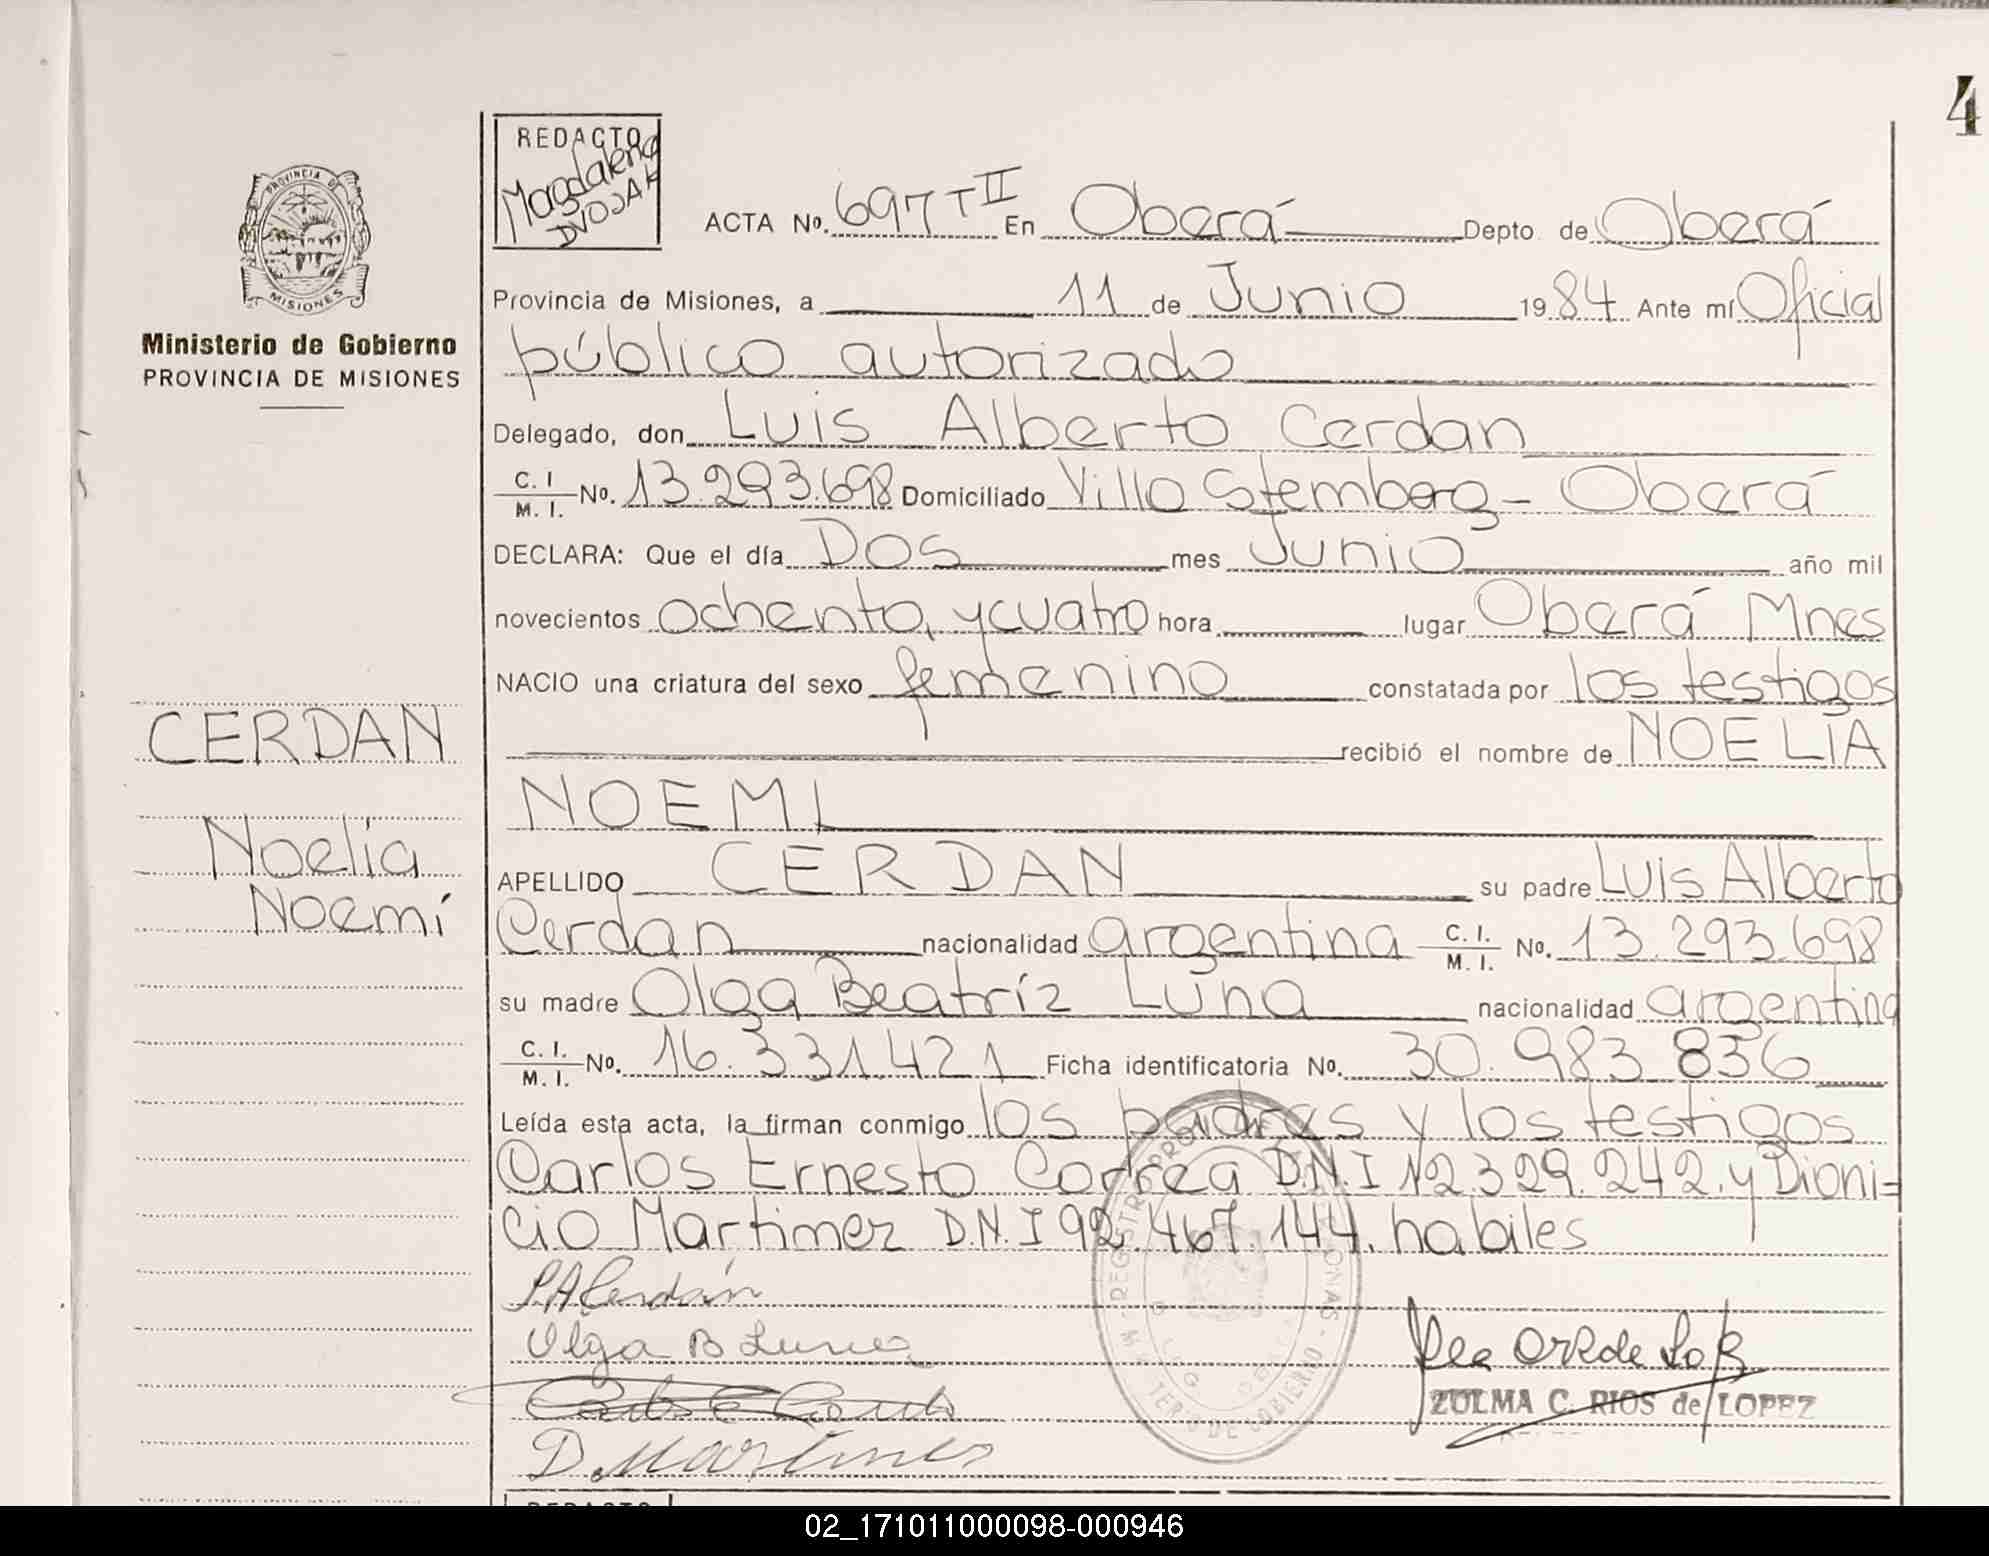 4
REDACTO
Magdalena
DVOJAK
ACTA No. 697 T II En Oberá Depto de Oberá
PROVINCIA DE
MISIONES
Ministerio de Gobierno
PROVINCIA DE MISIONES
Provincia de Misiones, a 11 de Junio 1984 Ante mí Oficial
público autorizado
Delegado, don Luis Alberto Cerdan
C. I. M. I. No. 13.293.698 Domiciliado Villa Stemberg - Oberá
DECLARA: Que el día Dos mes Junio año mil
novecientos ochenta y cuatro hora lugar Oberá Mnes
NACIO una criatura del sexo femenino constatada por los testigos
recibió el nombre de NOELÍA
NOEMI
CERDAN
Noelía
Noemí
APELLIDO CERDAN su padre Luis Alberto
Cerdan nacionalidad argentina C. I. M. I. No. 13.293.698
su madre Olga Beatríz Luna nacionalidad argentina
C. I. M. I. No. 16.331.421 Ficha identificatoria No. 30.983.836
Leída esta acta, la firman conmigo los padres y los testigos
Carlos Ernesto Correa D.N.I 12.329.242. y Dioni=
cio Martimez D.N.I 92.467.144. habiles
L A Cerdán
Olga B Luna
D. Martines
ZULMA C. RIOS de LOPEZ
REDACTO
02_171011000098-000946